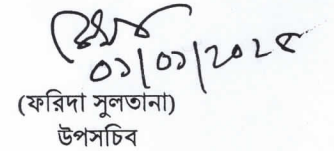 ০১/০১/২০২৫
(ফরিদা সুলতানা)
উপসচিব